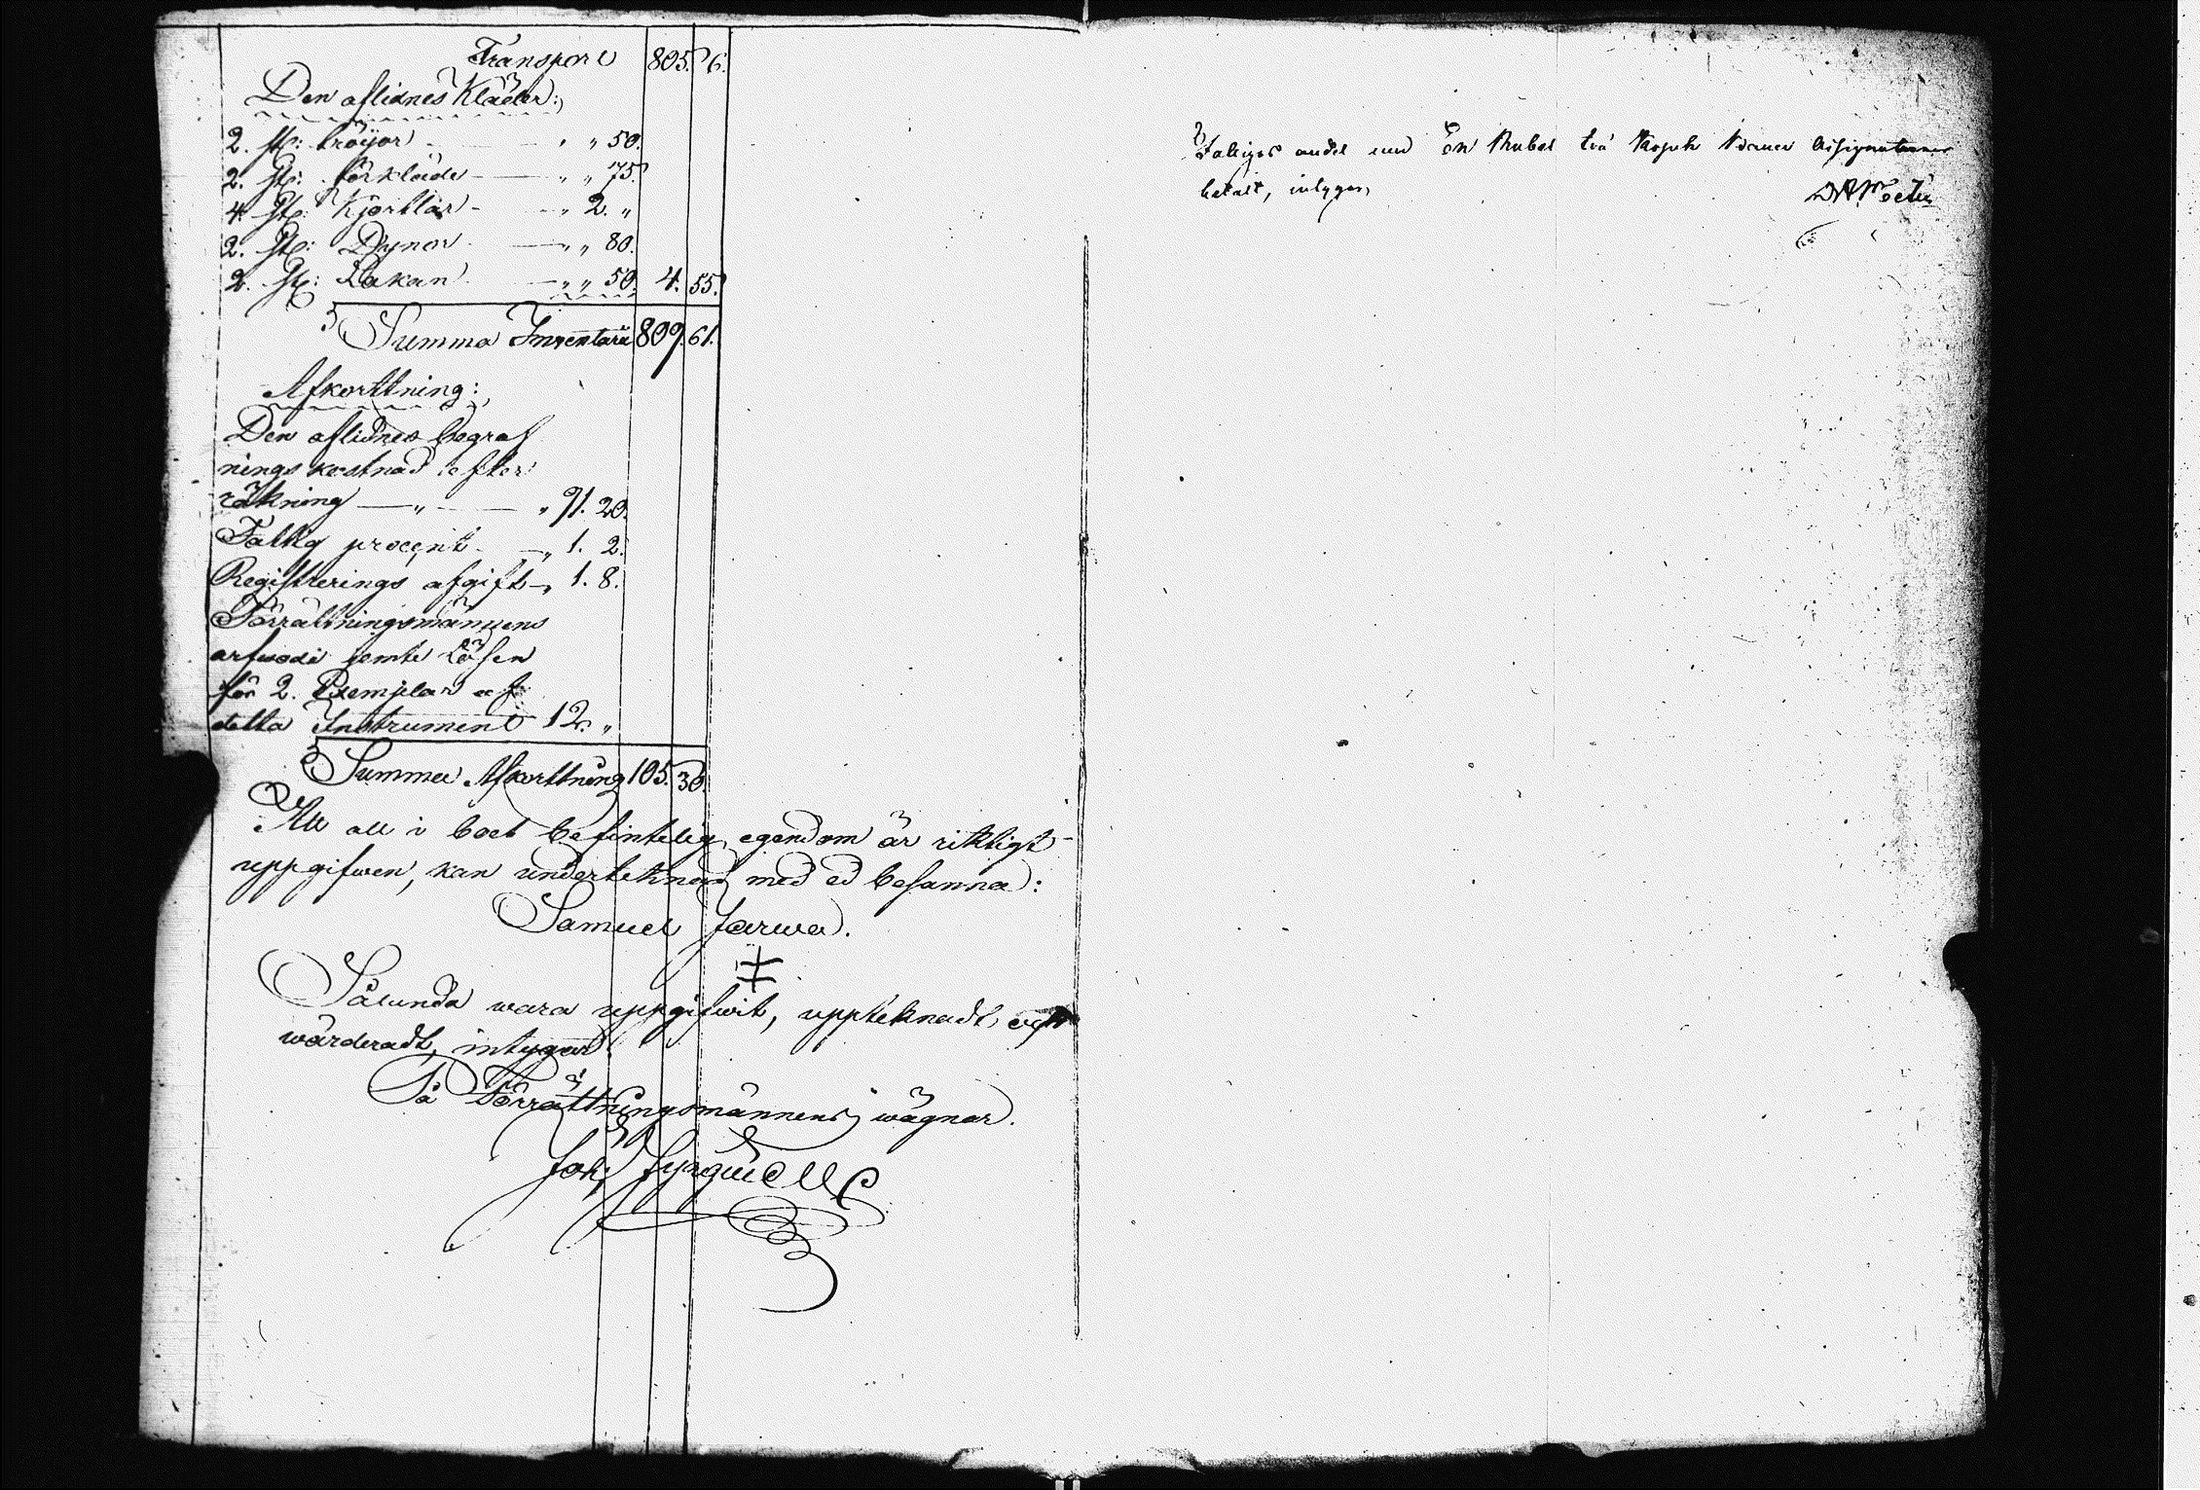 Transport 805. 6.
Den aflidnes Kläder:
2. st: tröijor — " " 50.
2. st: förkläde — " " 75.
4. st: Kjortlar — " 2. "
2. st: Dynor — " " 80.
2. st: Lakan — " " 50. 4. 55.
Summa Inventarii 809. 61.
Afkorttning:
Den aflidnes begraf
nings kostnad efter
räkning — " — " 91. 20.
Fattig procent — " 1. 2.
Registrerings afgift — " 1. 8.
Förrättningsmännens
arfwode jemte Lösen
för 2. Exemplar af
detta Instrument 12. "
Summa Afkorttning 105. 30.
Att all i boet befintelig egendom är riktigt
uppgifwen, kan underteknad med ed besanna:
Samuel Jarwa.
Sålunda wara uppgifwit, upptecknadt och
wärderadt, intygar
På Förrättningsmännens wägnar.
Joh:
Fattiges andel med En Rubel två Kopek Banco Assignationer
betalt, intygar,